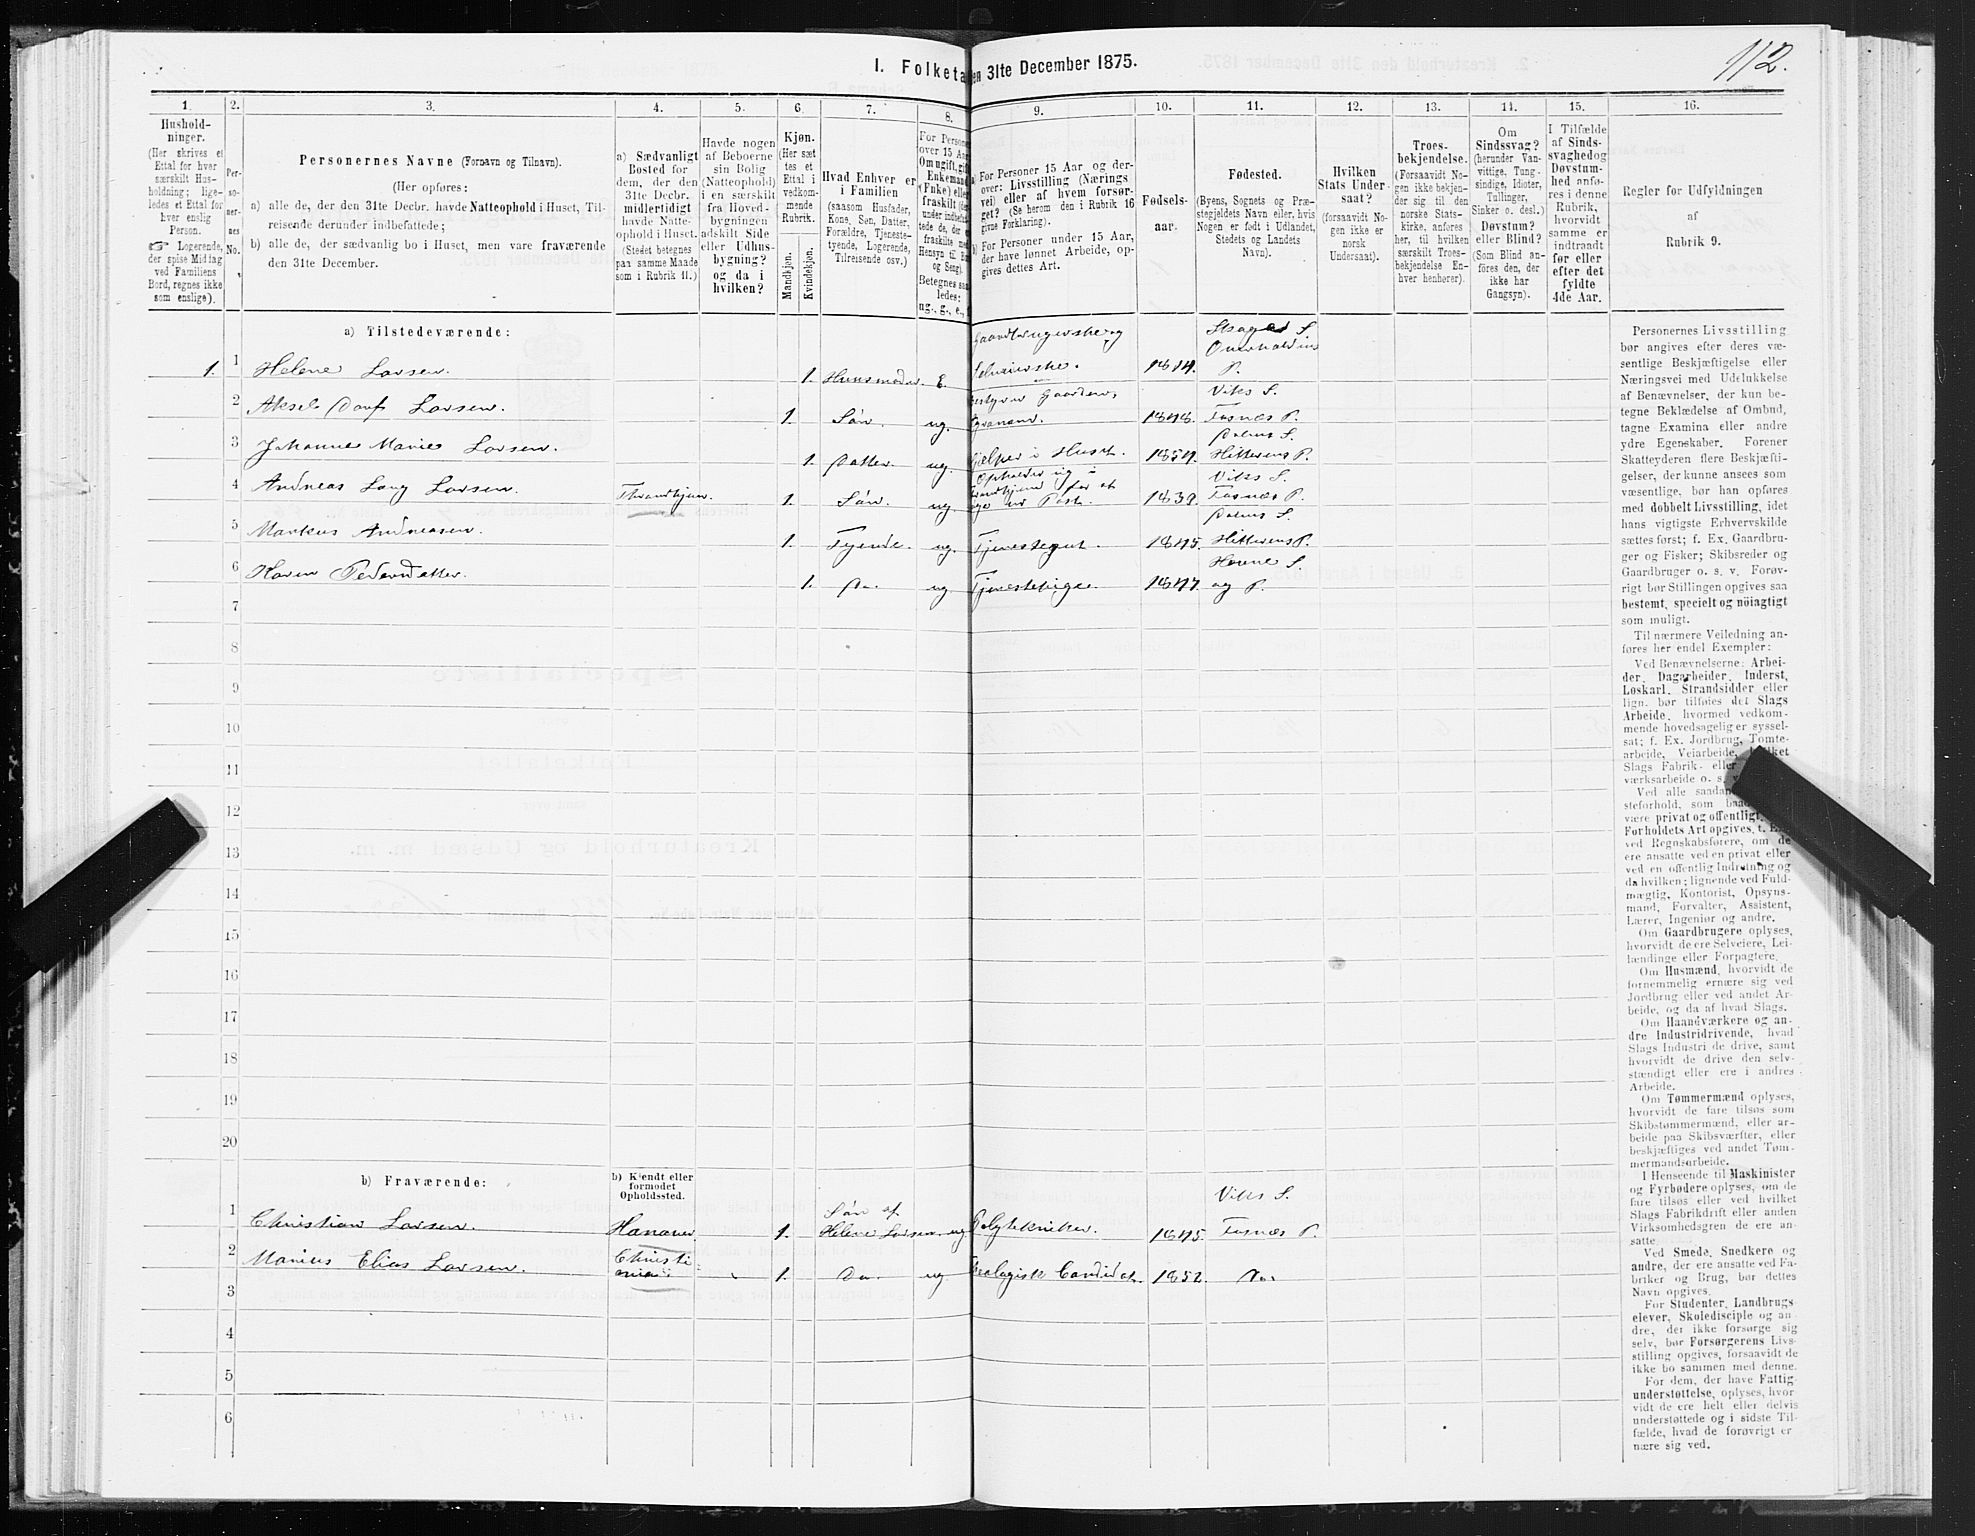 112.
I. Folketa en 31te December 1875.
1. 2. 3. 4. 5. 6. 7. 8. 9. 10. 11. 12. 13. 14. 15. 16.
Hushold-
ninger.
(Her skrives et
Ettal for hver
særskilt Hus-
holdning; lige-
ledes et Ettal for
hver enslig
Person.
☞ Logerende,
der spise Middag
ved Familiens
Bord, regnes ikke
som enslige).
Per-
so-
ner-
nes
No.
Personernes Navne (Fornavn og Tilnavn).
(Her opføres:
a) alle de, der den 31te Decbr. havde Natteophold i Huset, Til-
reisende derunder indbefattede;
b) alle de, der sædvanlig bo i Huset, men vare fraværende
den 31te December.
a) Sædvanligt
Bosted for
dem, der den
31te Decbr.
midlertidigt
havde Natte-
ophold i Huset.
(Stedet betegnes
paa samme Maade
som i Rubrik 11.)
Havde nogen
af Beboerne
sin Bolig
(Natteophold)
i en særskilt
fra Hoved-
bygningen
adskilt Side
eller Udhus-
bygning?
og da i
hvilken?
Kjøn.
(Her sæt-
tes et
Ettal i
vedkom-
mende
Rubrik.
Mandkjøn.
Kvindekjøn.
Hvad Enhver er
i Familien
(saasom Husfader,
Kone, Søn, Datter,
Forældre, Tjeneste-
tyende, Logerende,
Tilreisende osv.)
For Persone
over 15 Aar
Om ugift, gift
Enkemand
(Enke) eller
fraskilt
Betegnes saa-
ledes:
ug., g., e.,
a) For Personer 15 Aar og der-
over: Livsstilling (Nærings
vei) eller af hvem forsør-
get? (Se herom den i Rubrik 16
givne Forklaring).
b) For Personer under 15 Aar,
der have lønnet Arbeide, op-
gives dettes Art.
Fødsels-
aar.
Fødested.
(Byens, Sognets og Præ-
stegjeldets Navn eller, hvis
Nogen er født i Udlandet,
Stedets og Landets
Navn).
Hvilken
Stats Under-
saat?
(forsaavidt No-
gen ikke er
norsk
Undersaat).
Troes-
bekjendelse.
(Forsaavidt No-
gen ikke bekjen-
der sig til den
norske Stats-
kirke, anføres
her, til hvilken
særskilt Troes-
bekjendelse En-
hver henhører).
Om
Sindssvag?
(herunder Van-
vittige, Tung-
sindige, Idioter,
Tullinger,
Sinker o. desl.)
Døvstum?
eller Blind?
(Som Blind an-
føres den, der
ikke har
Gangsyn).
I Tilfælde
af Sinds-
svaghedog
Døvstum-
hed anfø-
res i denne
Rubrik,
hvorvidt
samme er
indtraadt
før eller
efter det
fyldte
4de Aar.
Regler for Udfyldningen
af
Rubrik 9.
a) Tilstedeværende:
Gaardbrugerske og Skage S.
Overhaldens
1. 1 Helene Larsen. 1. Huusmoder. E. Selveierske. 1814. P.
bestyrer Gaarden, Viks S.
2 Aksel Larsen. 1. Søn. ug. 1848. Fosnæs P.
Dolms S.
3 Johanne Marie Larsen. 1. Datter. ug. Hjælper i Huset. 1854. Hitterens P.
Opholder sig i Viks S.
4 Andreas Lang Larsen. Throndhjem. 1. Søn. ug. Post. 1839. Fosnæs P.
Dolms S.
5 Markus Andreasen. 1. Tyende. ug. Tjenestegut. 1845. Hitterens P.
Hevne S.
6 Karen Pedersdatter. 1. Do. ug. Tjenestepige. 1847. og P.
7
8
9
10
11
12
13
14
15
16
17
18
19
20
b) Fraværende:
b) Kjendt eller
formodet
Opholdssted.
Søn af Viks S.
1 Christian Larsen. Hanover 1. Helene Larsen. ug Polytekniker. 1845. Fosnæs P.
2 Marius Elias Larsen. Christi-
ania. 1. Do. ug. Theologisk Candidat. 1852. Do.
3
4
5
6
Personernes Livsstilling
bør angives efter deres væ-
sentlige Beskjæftigelse eller
Næringsvei med Udelukkelse
af Benævnelser, der kun be-
tegne Beklædelse af Ombud,
tagne Examina eller andre
ydre Egenskaber. Forener
Skatteyderen flere Beskjæfti-
gelser, der kunne ansees som
væsentlige, bør han opføres
med dobbelt Livsstilling, idet
hans vigtigste Erhvervskilde
sættes først; f. Ex. Gaardbru-
ger og Fisker; Skibsreder og
Gaardbruger o. s. v. Forøv-
rigt bør Stillingen opgives saa
bestemt, specielt og nöiagtigt
som muligt.
Til nærmere Veiledning an-
føres her endel Exempler:
Ved Benævnelserne: Arbei-
der, Dagarbeider, Inderst,
Løskarl, Strandsidder eller
lign. bør tilføies det Slags
Arbeide, hvormed vedkom-
mende hovedsagelig er syssel-
sat; f. Ex. Jordbrug, Tomte-
arbeide, Veiarbeide, hvilket
Slags Fabrik- eller
værksarbeide o. s. v.
Ved alle saadan
steforhold, som baade
være privat og offentligt,
Forholdets Art opgives, t. Ex.
ved Regnskabsførere, om de
ere ansatte ved en privat eller
ved en offentlig Indretning og
da hvilken; lignende ved Fuld-
mægtig, Kontorist, Opsyns-
mand, Forvalter, Assistent,
Lærer, Ingeniør og andre.
Om Gaardbrugere oplyses,
hvorvidt de ere Selveiere, Lei-
lændinge eller Forpagtere.
Om Husmænd, hvorvidt de
fornemmelig ernære sig ved
Jordbrug eller ved andet Ar-
beide, og da af hvad Slags.
Om Haandværkere og an-
dre Industridrivende, hvad
Slags Industri de drive, samt
hvorvidt de drive den selv-
stændigt eller ere i andres
Arbeide.
Om Tømmermænd oplyses,
hvorvidt de fare tilsøs som
Skibstømmermænd, eller ar-
beide paa Skibsværfter, eller
beskjæftiges ved andet Tøm-
mermandsarbeide.
I Henseende til Maskinister
og Fyrbødere oplyses, om de
fare tilsøs eller ved hvilket
Slags Fabrikdrift eller anden
Virksomhedsgren de ere an-
satte.
Ved Smede, Snedkere og
andre, der ere ansatte ved Fa-
briker og Brug, bør dettes
Navn opgives.
For Studenter, Landbrugs-
elever, Skoledisciple og an-
dre, der ikke forsørge sig
selv, bør Forsørgerens Livs-
stilling opgives, forsaavidt de
ikke bo sammen med denne.
For dem, der have Fattig-
understøttelse, oplyses, hvor
vidt de ere helt eller delvis
understøttede og i sidste Til-
fælde, hvad de forøvrigt er
nære sig ved.